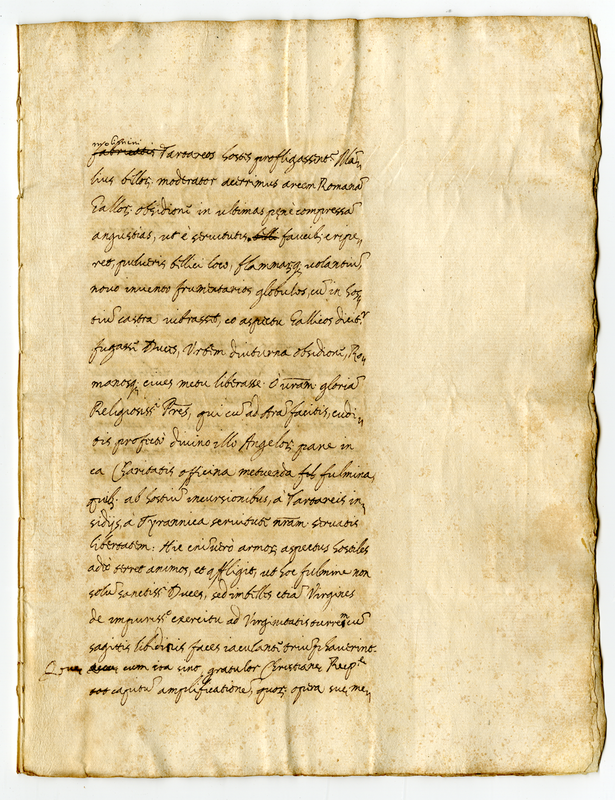 Tartareos hostis profligassent. Mã,
lius belloꝝ moderator acerrimus arcem Romanã
Galloꝝ obsidione in ultimas pene compressã
angustias, ut è servitutis faucib; eripe,,
ret, pulveris bellici loco, flammarq; volantiũ,
novo invento frumentarios globulos, cũ in hos,,
tiũ castra vibrasset, eo aspectu Gallicos dicit.r
fugasse Duces, Urbem diuturna obsidione, Ro,,
manosq; cives metu liberasse. O vram gloriã
Religiosiss. Pres, qui cũ ad Ara facitis, cudi,,
tis profecto divino illo Angeloꝝ pane in
ea Charitatis officina metuenda fulmina,
quib. ab hostiũ incursionibus, à Tartareis in,,
sidijs, à Tyrannica servitute nram servatis
libertatem. Hic enim verò armoꝝ aspectus hostiles
adeò terret animos, et affligit, ut hoc fulmine non
solũ sanctiss. Duces, sed imbelles etiã Virgines
de impuriss. exercitu ad Virginitatis turrem cũ
sagittis libidinis faces iaculante triũphaverint.
cum ita sint, gratulor Christianę Reip.
captũ amplificatione, quoꝝ opera sue, me,,